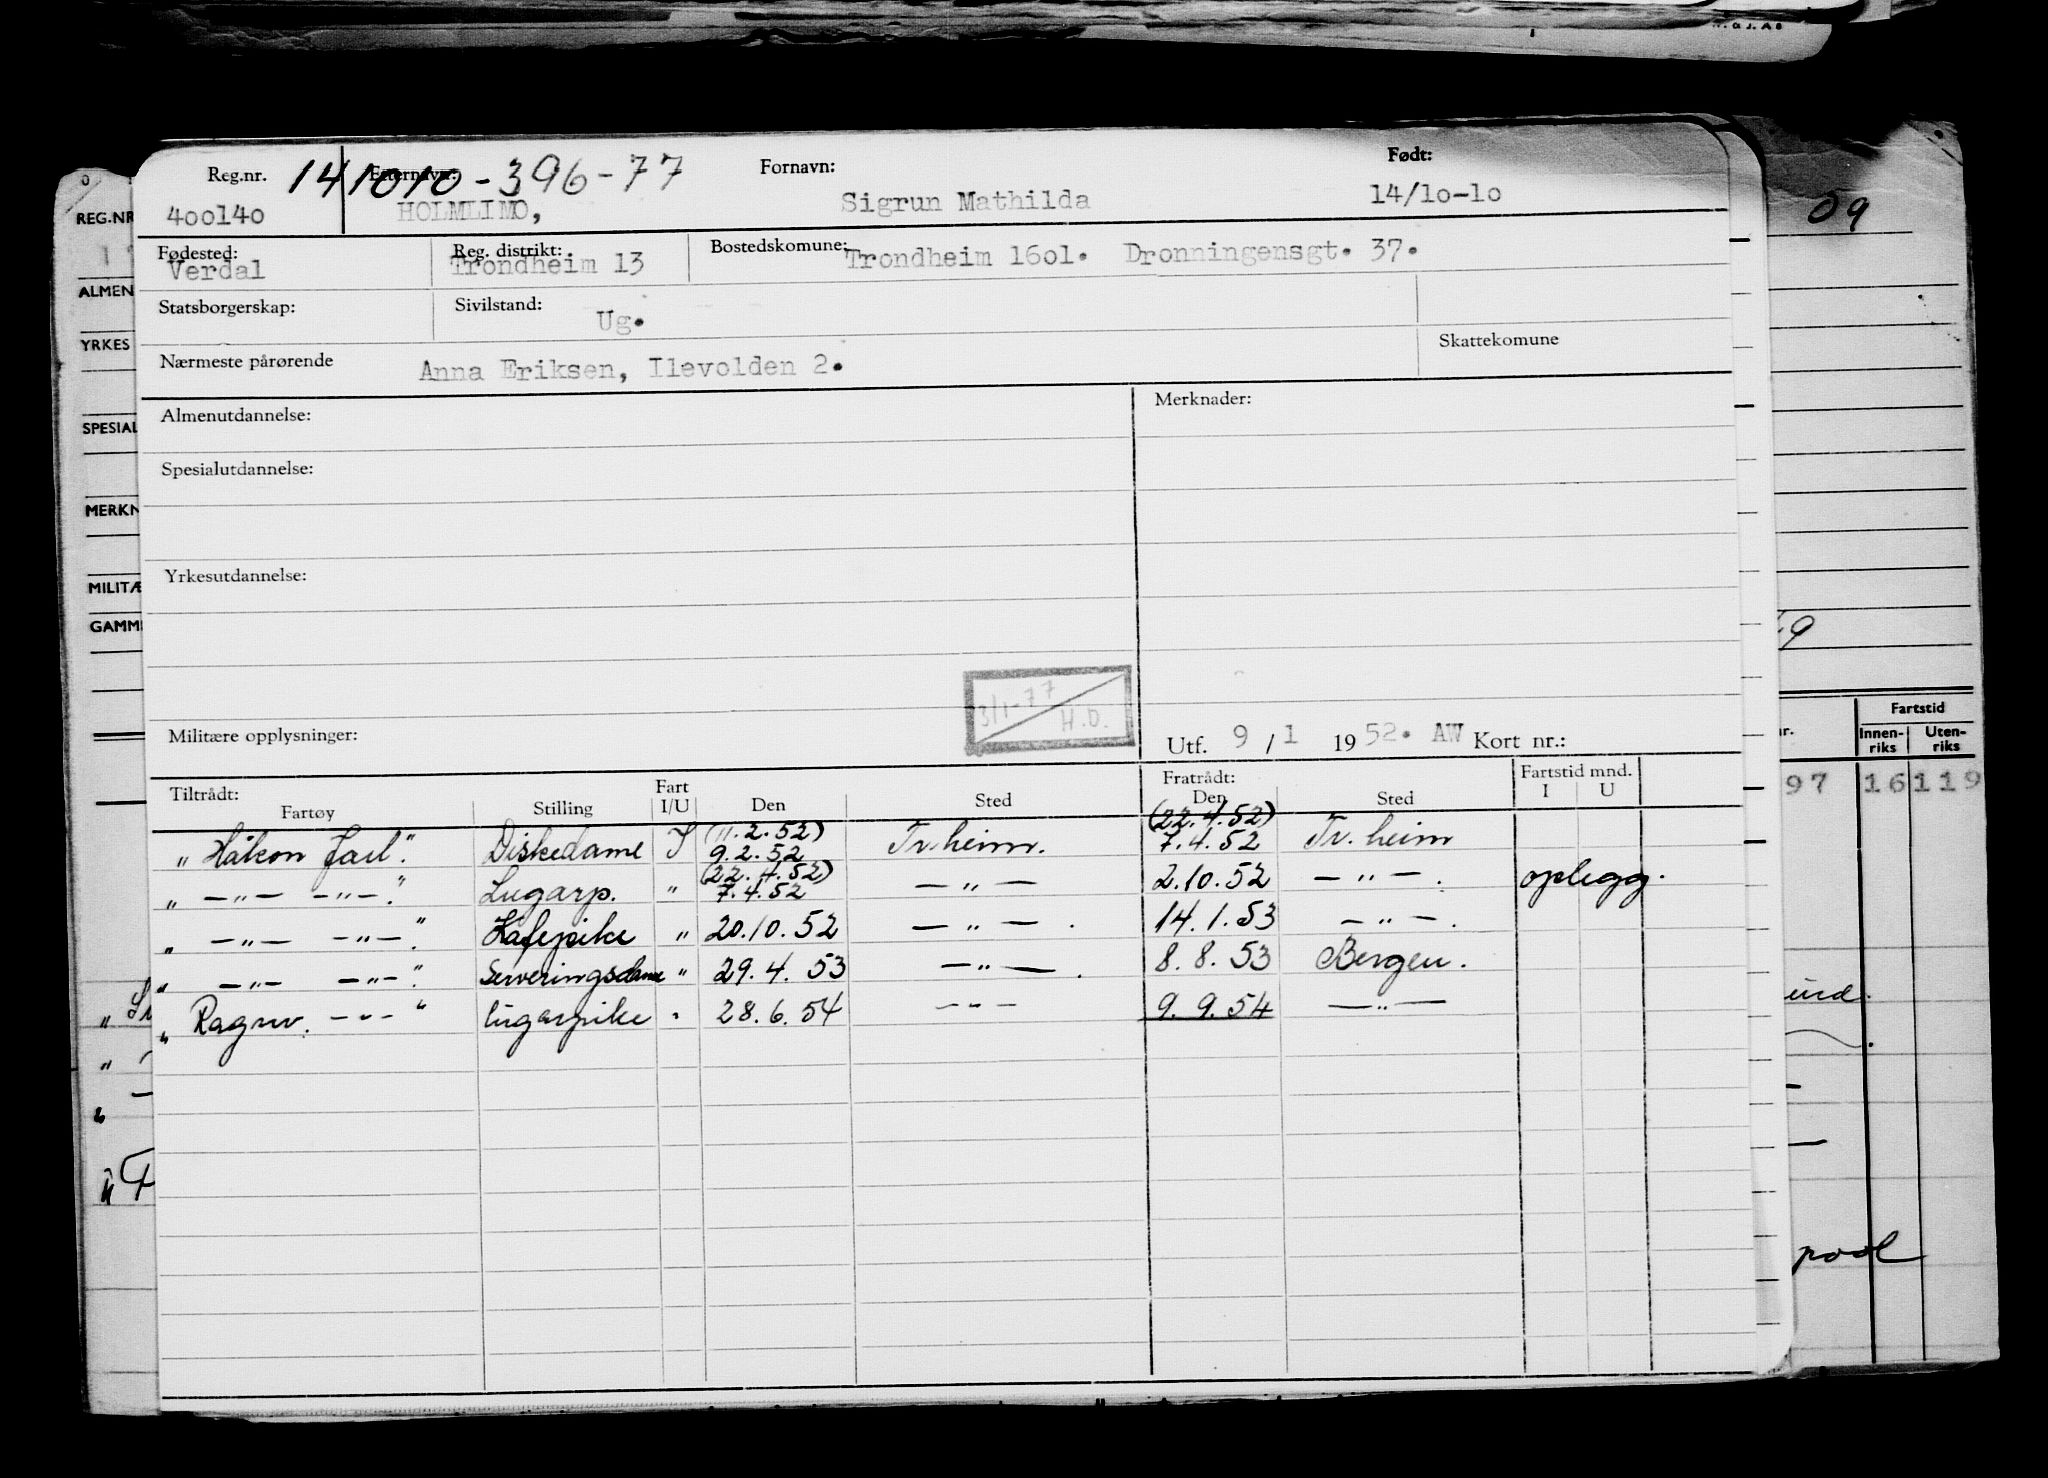 M. a J. A8
Reg.nr. 141010-396-77 Etternavn: Fornavn: Født:
400140 HOLMLIMO, Sigrun Mathilda 14/10-10
Fødested: Reg. distrikt: Bostedskomune:
Verdal Trondheim 13 Trondheim 1601. Dronningensgt. 37.
Statsborgerskap: Sivilstand: Ug.
Nærmeste pårørende Anna Eriksen, Ilevolden 2. Skattekomune
Almenutdannelse: Merknader:
Spesialutdannelse:
Yrkesutdannelse:
3/1-77 H.O.
Militære opplysninger: Utf. 9/1 1952. AW Kort nr.:
Tiltrådt: Fratrådt: Fartstid mnd.
Fartøy Stilling Fart I/U Den Sted Den Sted I U
(11.2.52) (22.4.52)
"Håkon Jarl". Diskedame I 9.2.52 Tr.heim. 7.4.52 Tr. heim
(22.4.52)
" -"- -"-." Lugarp. " 7.4.52 -"- 2.10.52 -"-. oplegg.
" -"- -"-." Kafepike " 20.10.52 -"-. 14.1.53 -"-.
" -"- -"-." Serveringsdame " 29.4.53 -"-. 8.8.53 Bergen.
" Ragnv. -"- " lugarpike " 28.6.54 -"- 9.9.54 -"-
REG.NR
ALMEN
YRKES
SPESIAL
MERKN
MILITÆ
GAMM
09
49
Fartstid
Innen-riks Uten-riks
97 16 119
pool